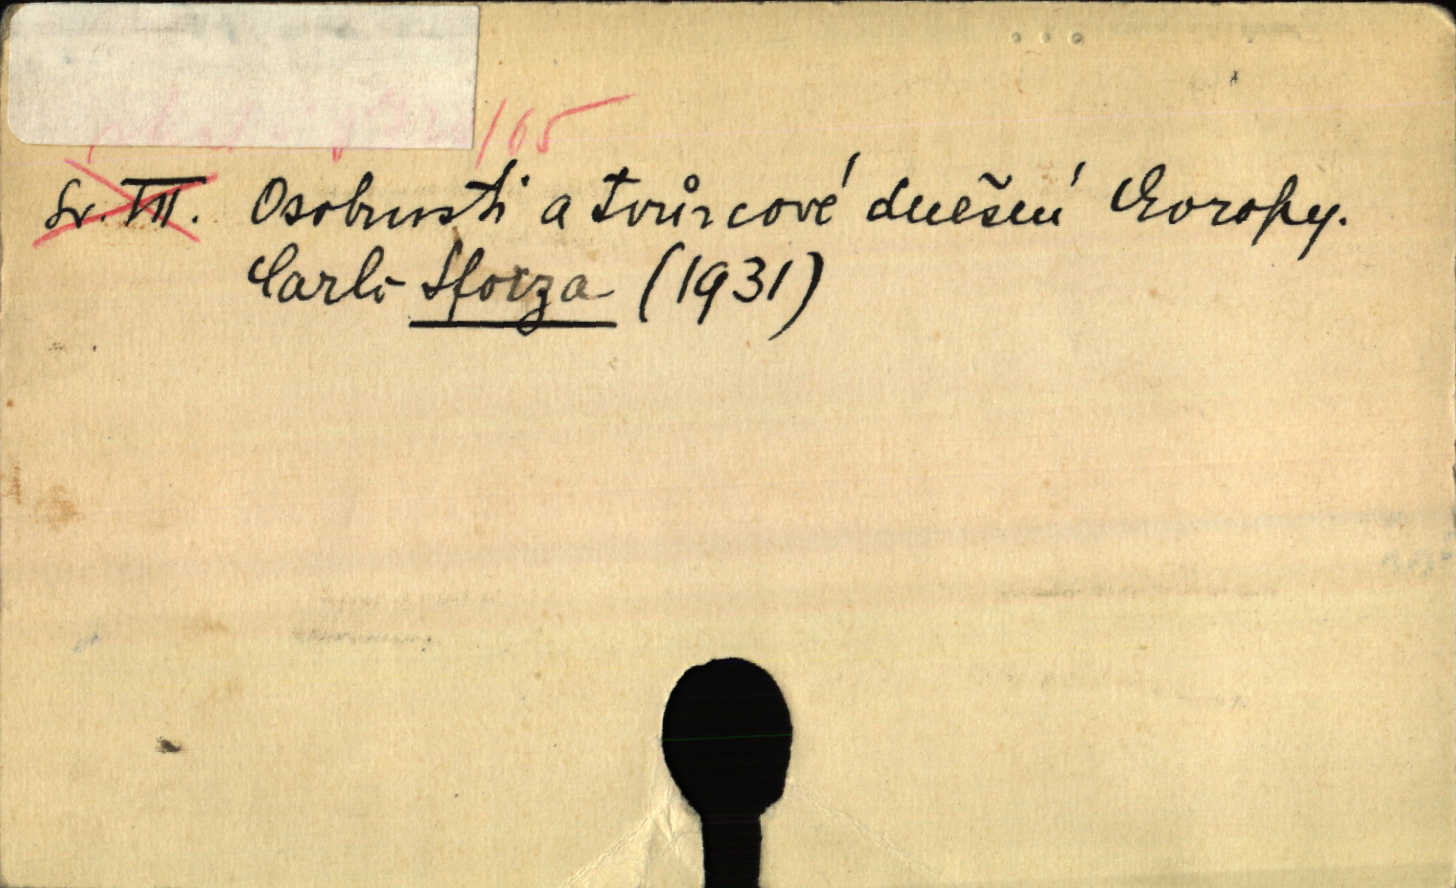 /65
Sv. III. Osobnosti a tvůrcové dnešní Evropy.
Carlo Sforza (1931)